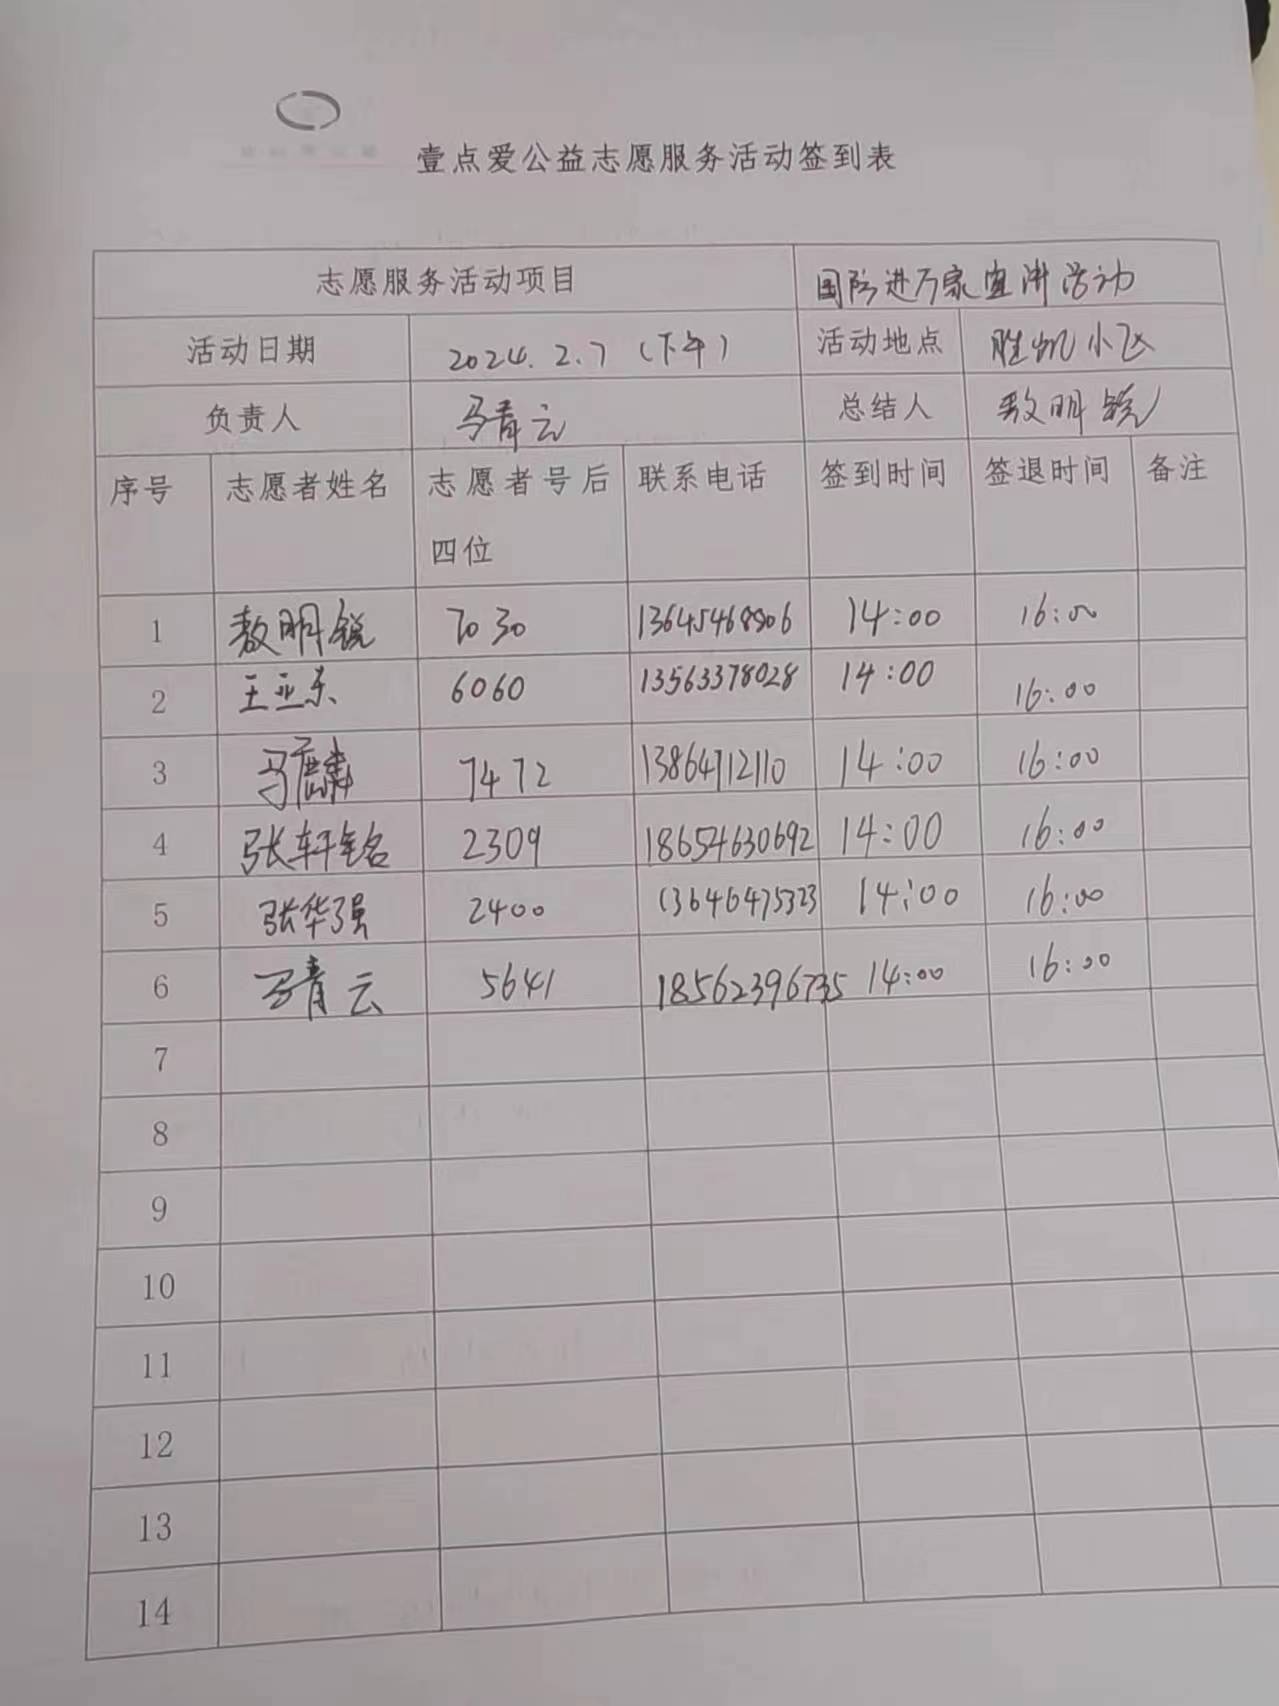 壹点爱公益志愿服务活动签到表
志愿服务活动项目 国防进万家宣讲活动
活动日期 2024.2.7（下午） 活动地点 胜凯小区
负责人 马青云 总结人 敖明锐
序号 志愿者姓名 志愿者号后 联系电话 签到时间 签退时间 备注
四位
1 敖明锐 7030 13645468906 14:00 16:00
2 王亚东 6060 13563378028 14:00 16:00
3 马骕 7472 13864712110 14:00 16:00
4 张轩铭 2309 18654630692 14:00 16:00
5 张华强 2400 13646475323 14:00 16:00
6 马青云 5641 18562396735 14:00 16:00
7
8
9
10
11
12
13
14